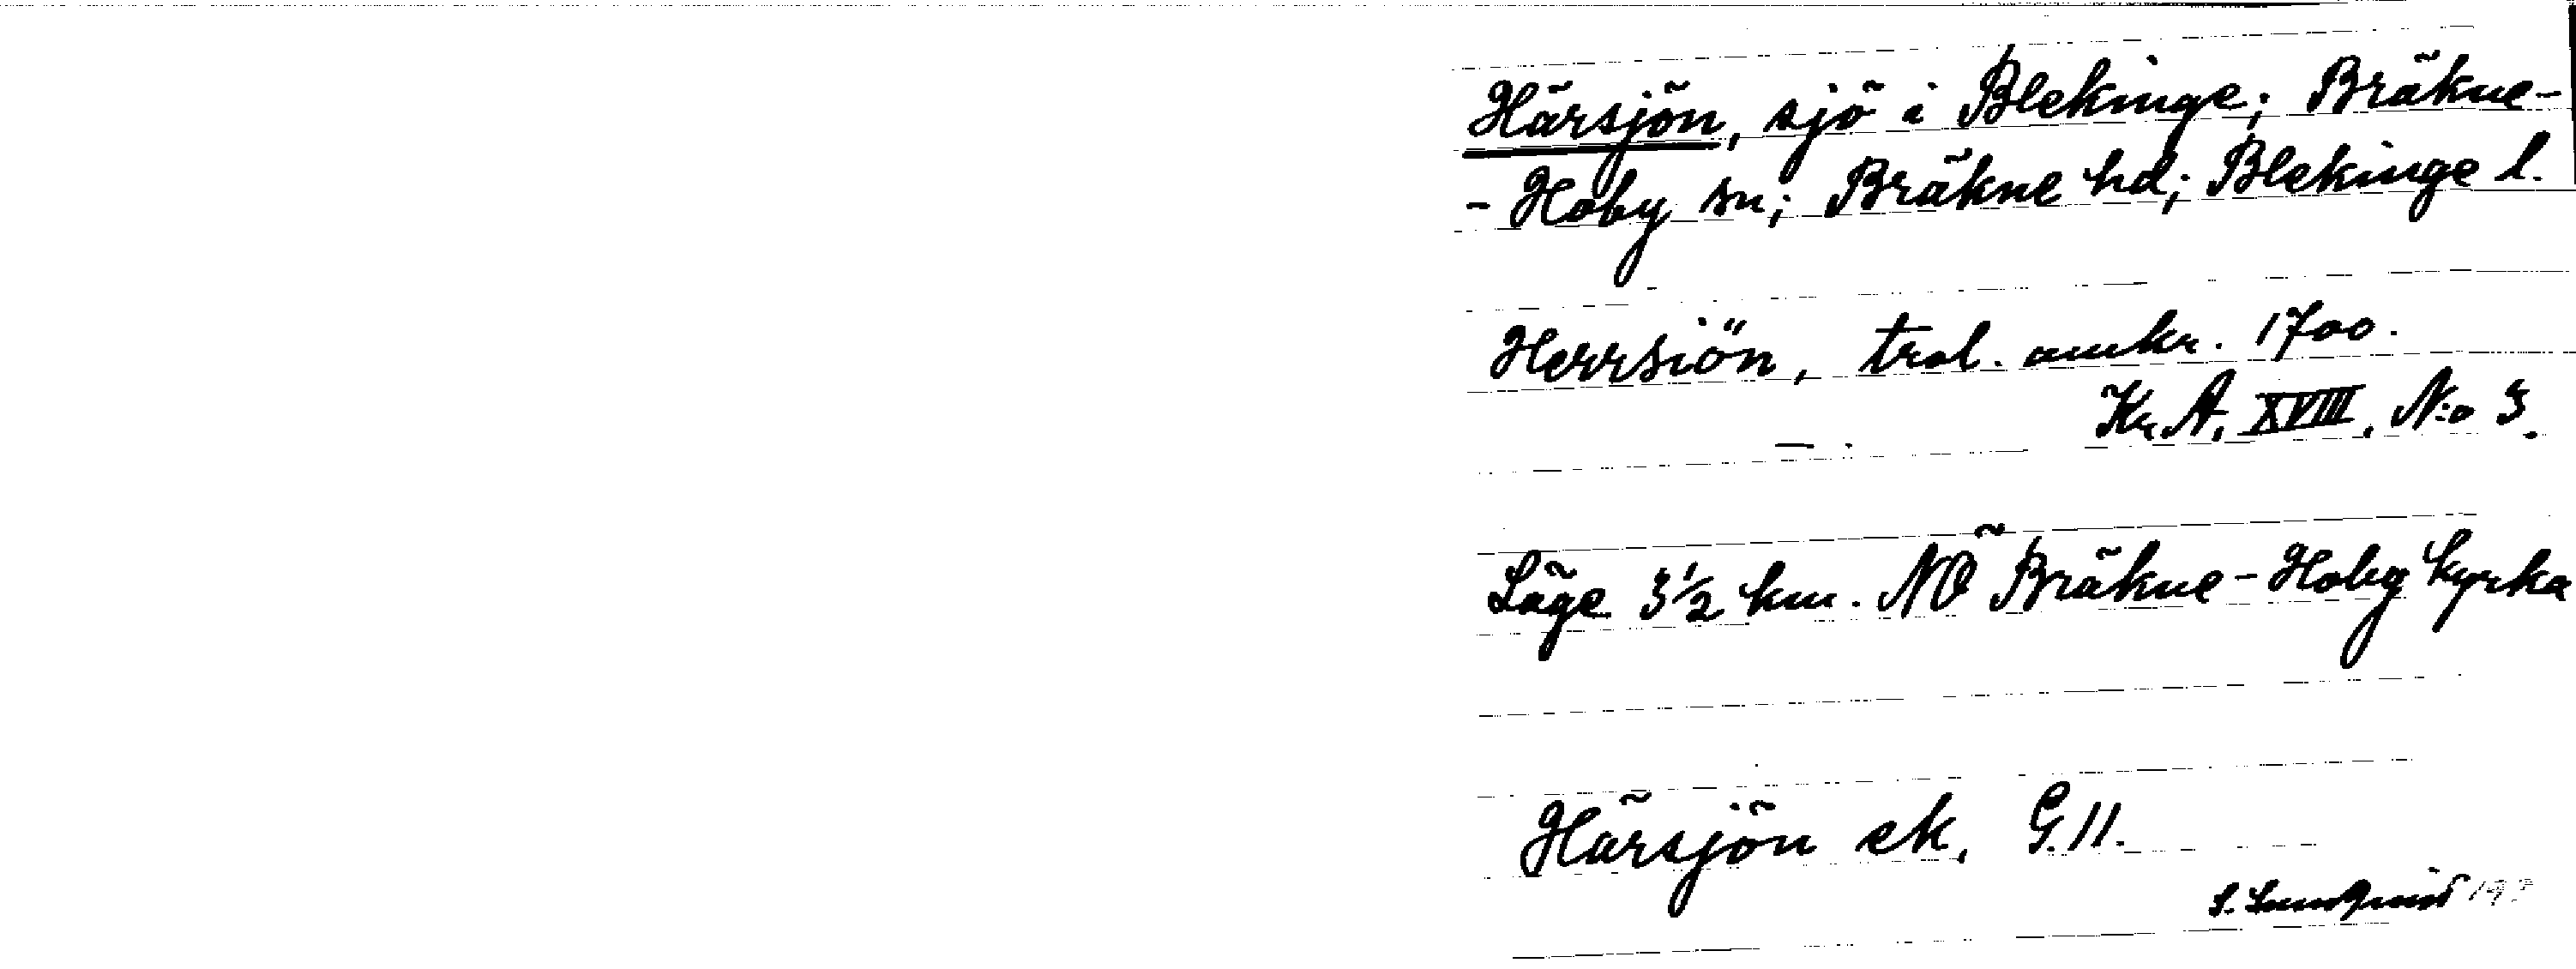 Härsjön, sjö i Blekinge; Bräkne-
- Hoby sn; Bräkne hd; Blekinge l.
Herrsiön, trol. omkr. 1700.
Kr. A. XVIII, N:o 3.
Läge 3 1/2 km. NÖ Bräkne-Hoby kyrka
Härsjön ek. G. 11.
S. Lundquist